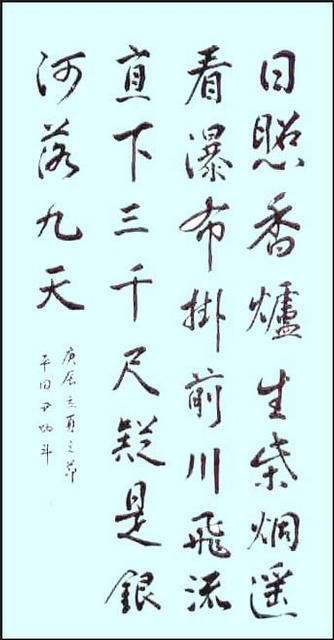 日照香爐生紫烟遥
看瀑布掛前川飛流
直下三千尺疑是銀
河落九天
庚辰立夏之節
平田